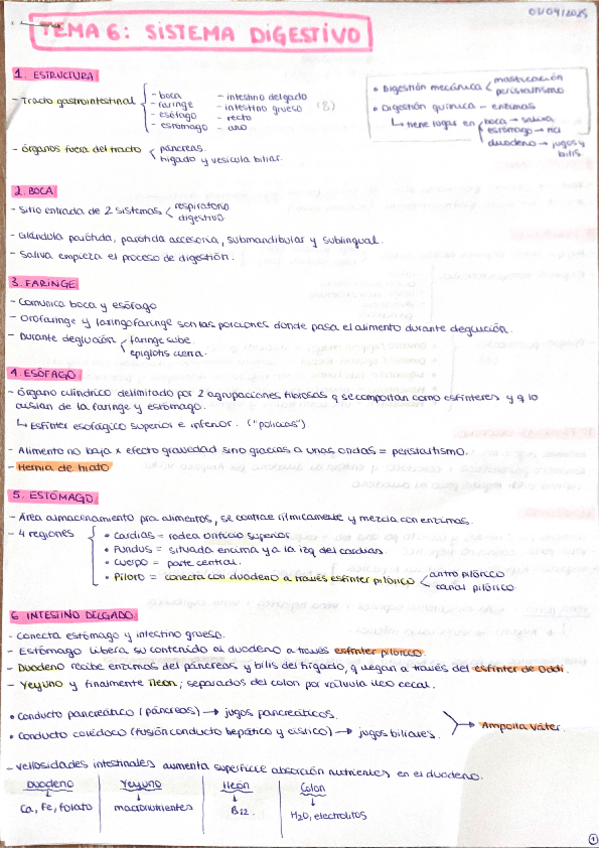 01/04/2025
TEMA 6: SISTEMA DIGESTIVO
1. ESTRUCTURA
- Tracto gastrointestinal
- boca
- faringe
- esófago
- estómago
- intestino delgado
- intestino grueso (8)
- recto
- ano
• Digestión mecánica
masticación
peristaltismo
• Digestión química - enzimas
↳ tiene lugar en
boca → saliva
estómago → HCl
duodeno → jugos y bilis
- órganos fuera del tracto
páncreas.
hígado y vesícula biliar.
2. BOCA
- Sitio entrada de 2 sistemas
respiratorio
digestivo
- Glándula parótida, parótida accesoria, submandibular y sublingual.
- Saliva empieza el proceso de digestión.
3. FARINGE
- Comunica boca y esófago
- Orofaringe y laringofaringe son las porciones donde pasa el alimento durante deglución.
- Durante deglución
faringe sube.
epiglotis cierra.
4. ESÓFAGO
- Órgano cilíndrico delimitado por 2 agrupaciones fibrosas q se comportan como esfínteres y q lo
aislan de la faringe y estómago.
↳ Esfínter esofágico superior e inferior. ("policías")
- Alimento no baja x efecto gravedad sino gracias a unas ondas = peristaltismo.
- Hernia de hiato
5. ESTÓMAGO
- Área almacenamiento pra alimentos, se contrae rítmicamente y mezcla con enzimas.
- 4 regiones
• Cardias = rodea orificio superior
• Fundus = situada encima y a la izq del cardias.
• Cuerpo = parte central.
• Píloro = conecta con duodeno a través esfínter pilórico
antro pilórico
canal pilórico
6 INTESTINO DELGADO
- Conecta estómago y intestino grueso.
- Estómago libera su contenido al duodeno a través esfínter pilórico.
- Duodeno recibe enzimas del páncreas y bilis del hígado, q llegan a través del esfínter de Oddi.
- Yeyuno y finalmente íleon; separados del colon por válvula íleo cecal.
• Conducto pancreático (páncreas) → jugos pancreáticos.
• Conducto colédoco (fusión conducto hepático y cístico) → jugos biliares.
→ Ampolla Váter.
- Vellosidades intestinales aumenta superficie absorción nutrientes en el duodeno.
Duodeno Yeyuno Íleon Colon
↓ ↓ ↓ ↓
Ca, Fe, folato macronutrientes B12. H2O, electrolitos
1